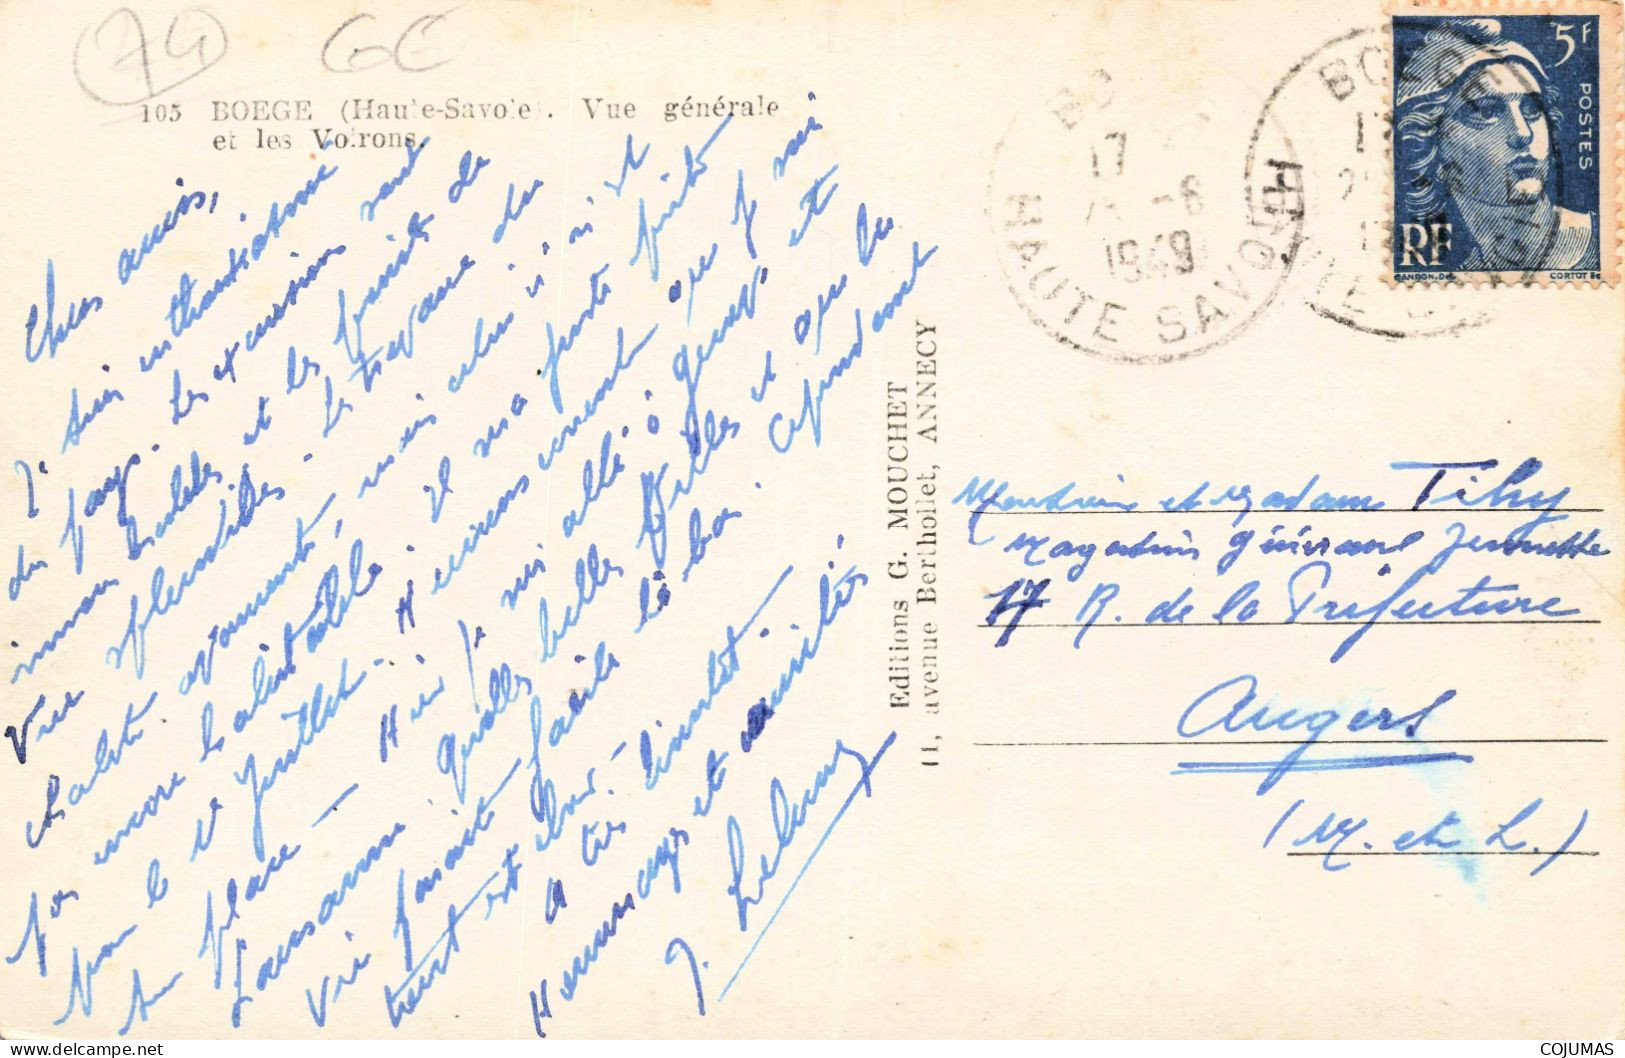 74 GC
105 BOEGE (Haute-Savoie). Vue générale
et les Voirons.
Chers amis,
Je suis enthousiasmé
du pays. Les excursions sont
innombrables et les points de
vue splendides. Les travaux du
chalet avancent, mais celui ci n'est
pas encore habitable il sera juste prêt
pour le 1er Juillet. Heureusement que j'ai
sa place — Hier je suis allé à Genève et
Lausanne quelles belles villes et que la
vie paraît facile là bas. cependant
tout est cher.
A très bientôt
Heureuses et amitiés
J.
Editions G. MOUCHET
11, avenue Berthollet, ANNECY
BO
17
-6
1949
HAUTE SAVOIE
BOEGE
5F
POSTES
RF
GANDON. DEL
CORTOT SC
Monsieur et Madame Tihy
Magasins Généraux Jeannette
17 R. de la Préfecture
Angers
(M. et L.)
COJUMAS